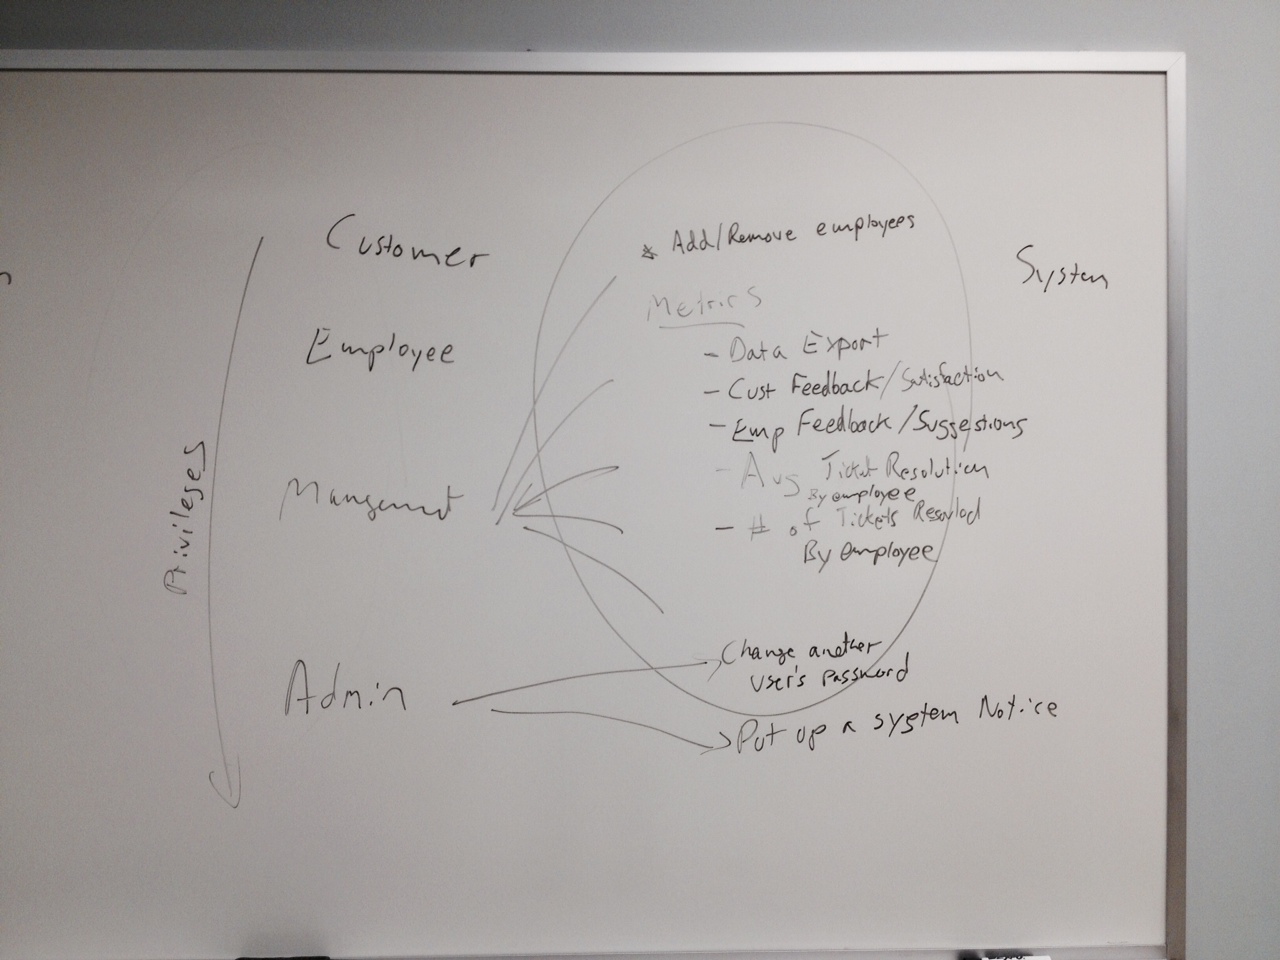 Customer
Employee
Management
Admin
Privileges
* Add/Remove employees
Metrics
- Data Export
- Cust Feedback/Satisfaction
- Emp Feedback/Suggestions
- Avg Ticket Resolution
By employee
- # of Tickets Resolved
By employee
Change another
User's password
Put up a system Notice
System